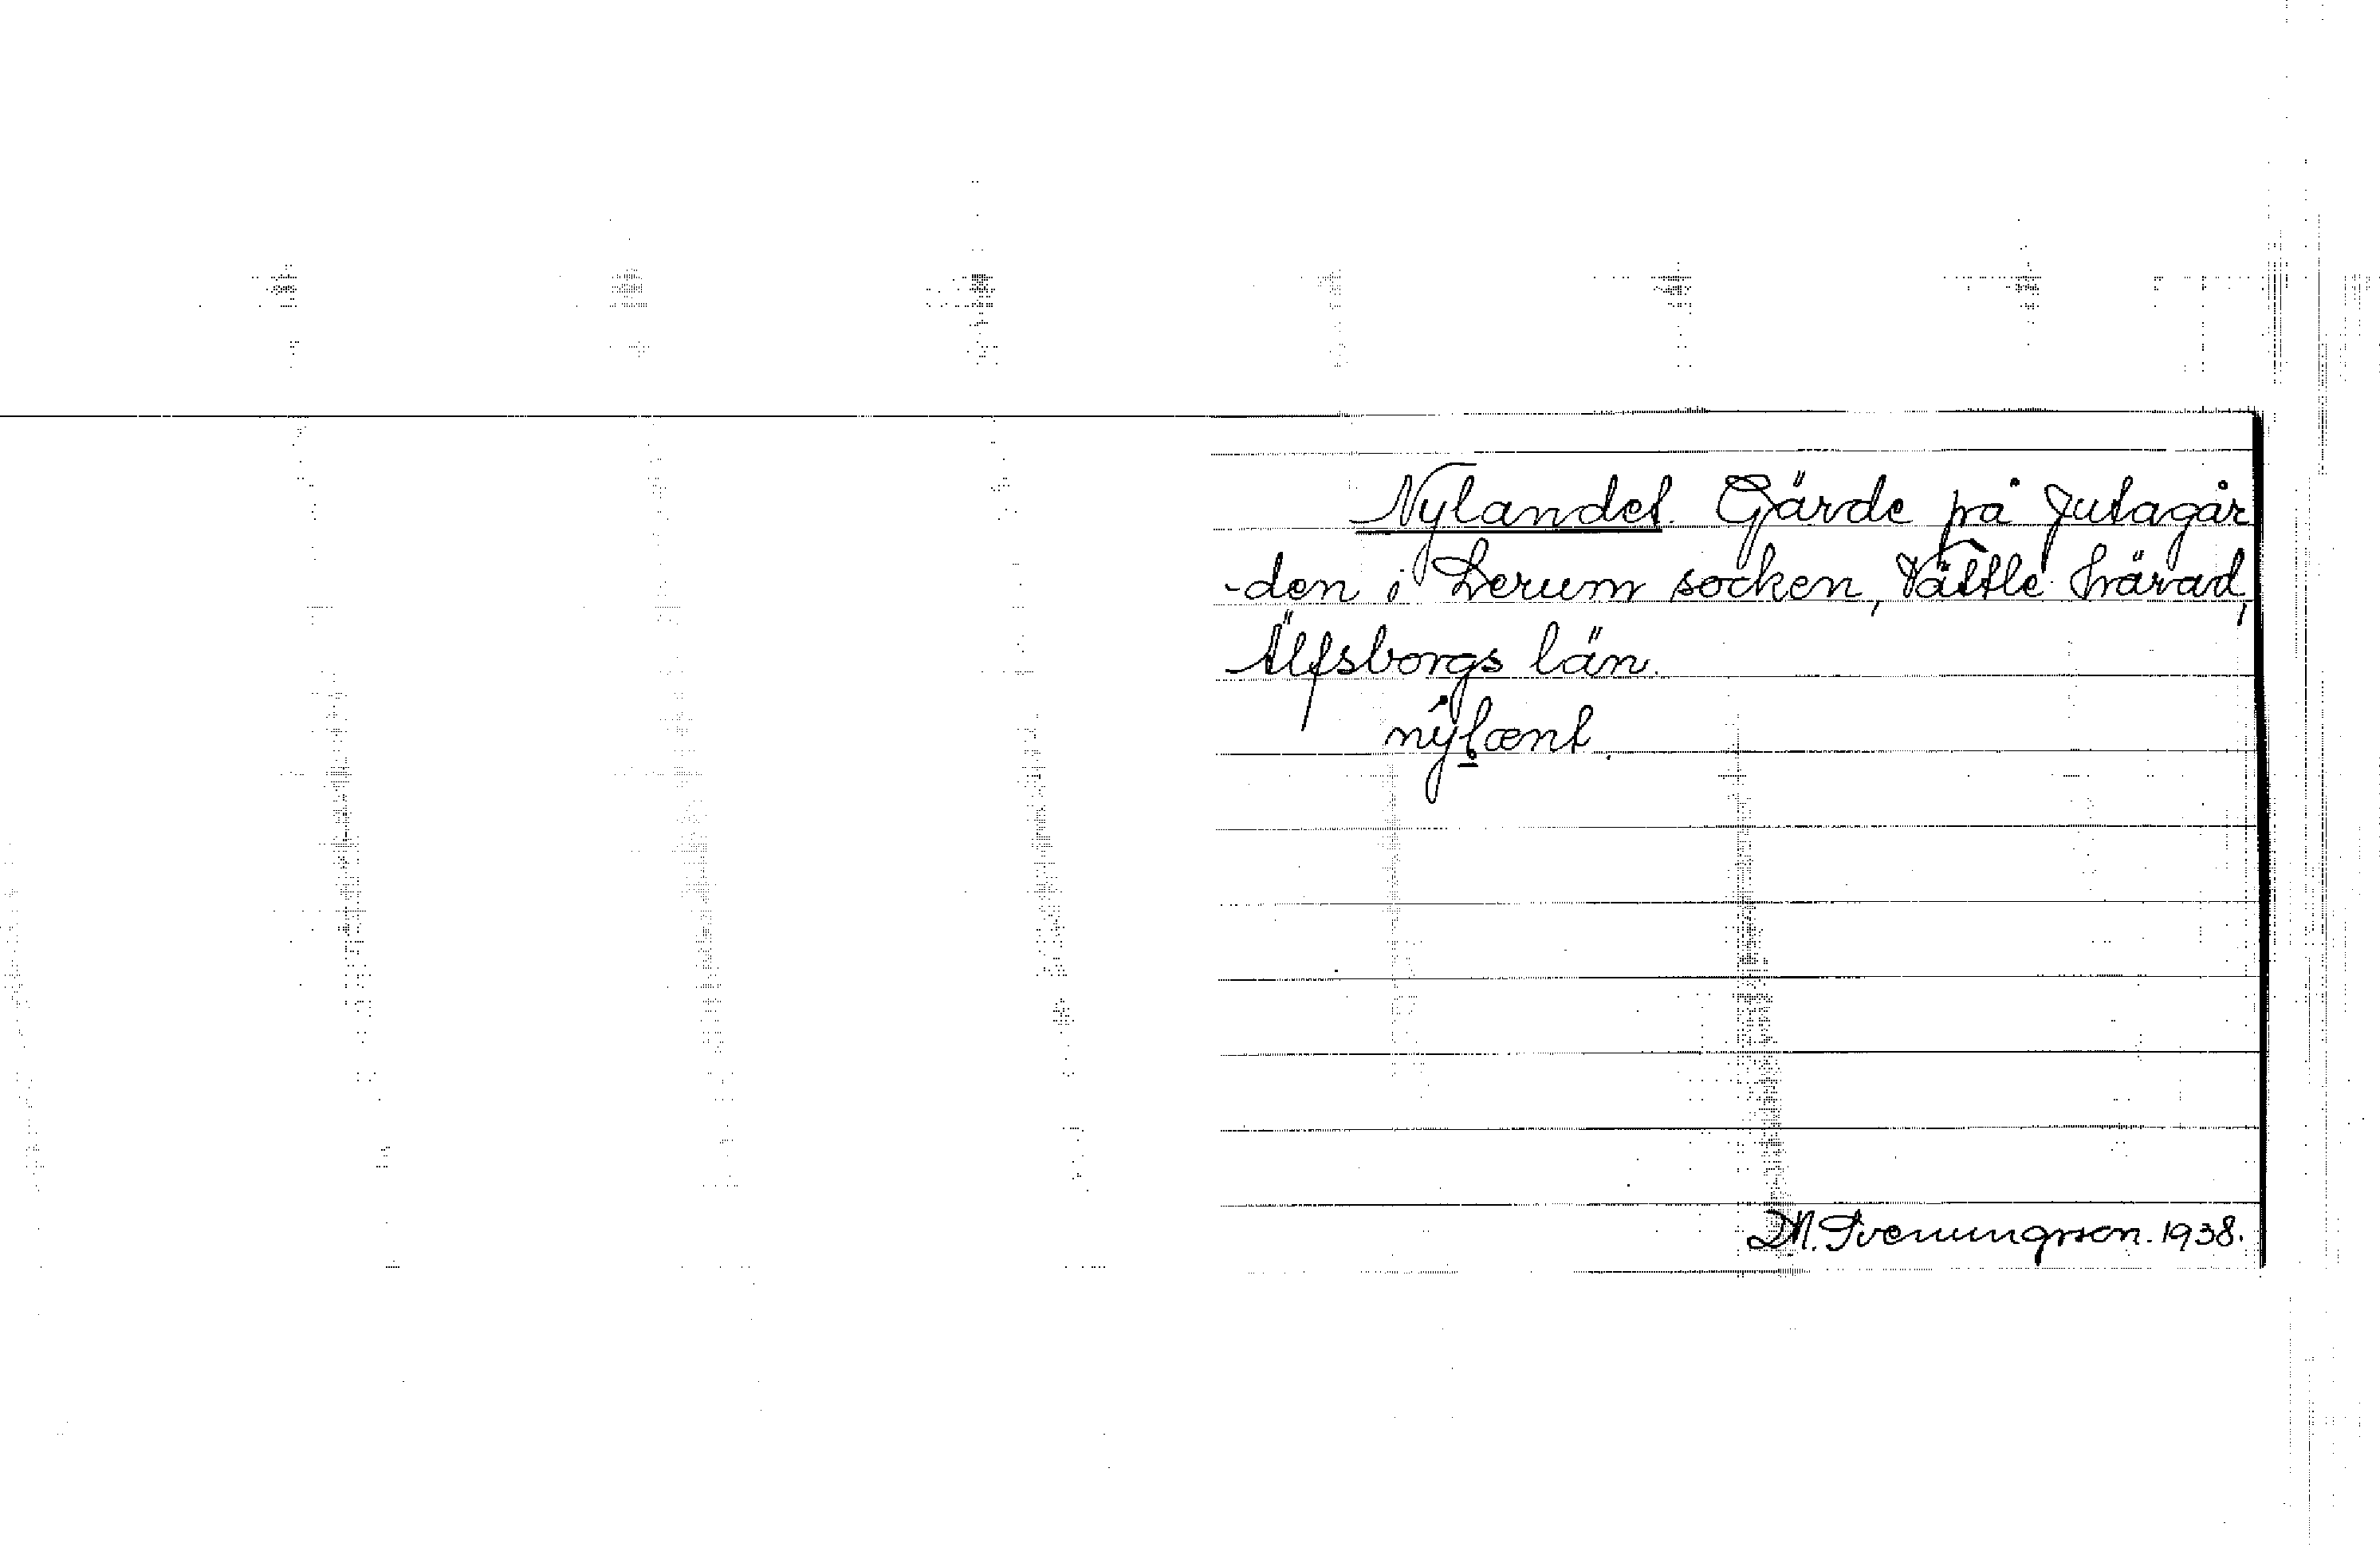 Nylandet. Gärde på Jutagår
-den i Lerum socken, Vättle härad,
Älfsborgs län.
nýlænt.
D.N. Svenungsson. 1938.